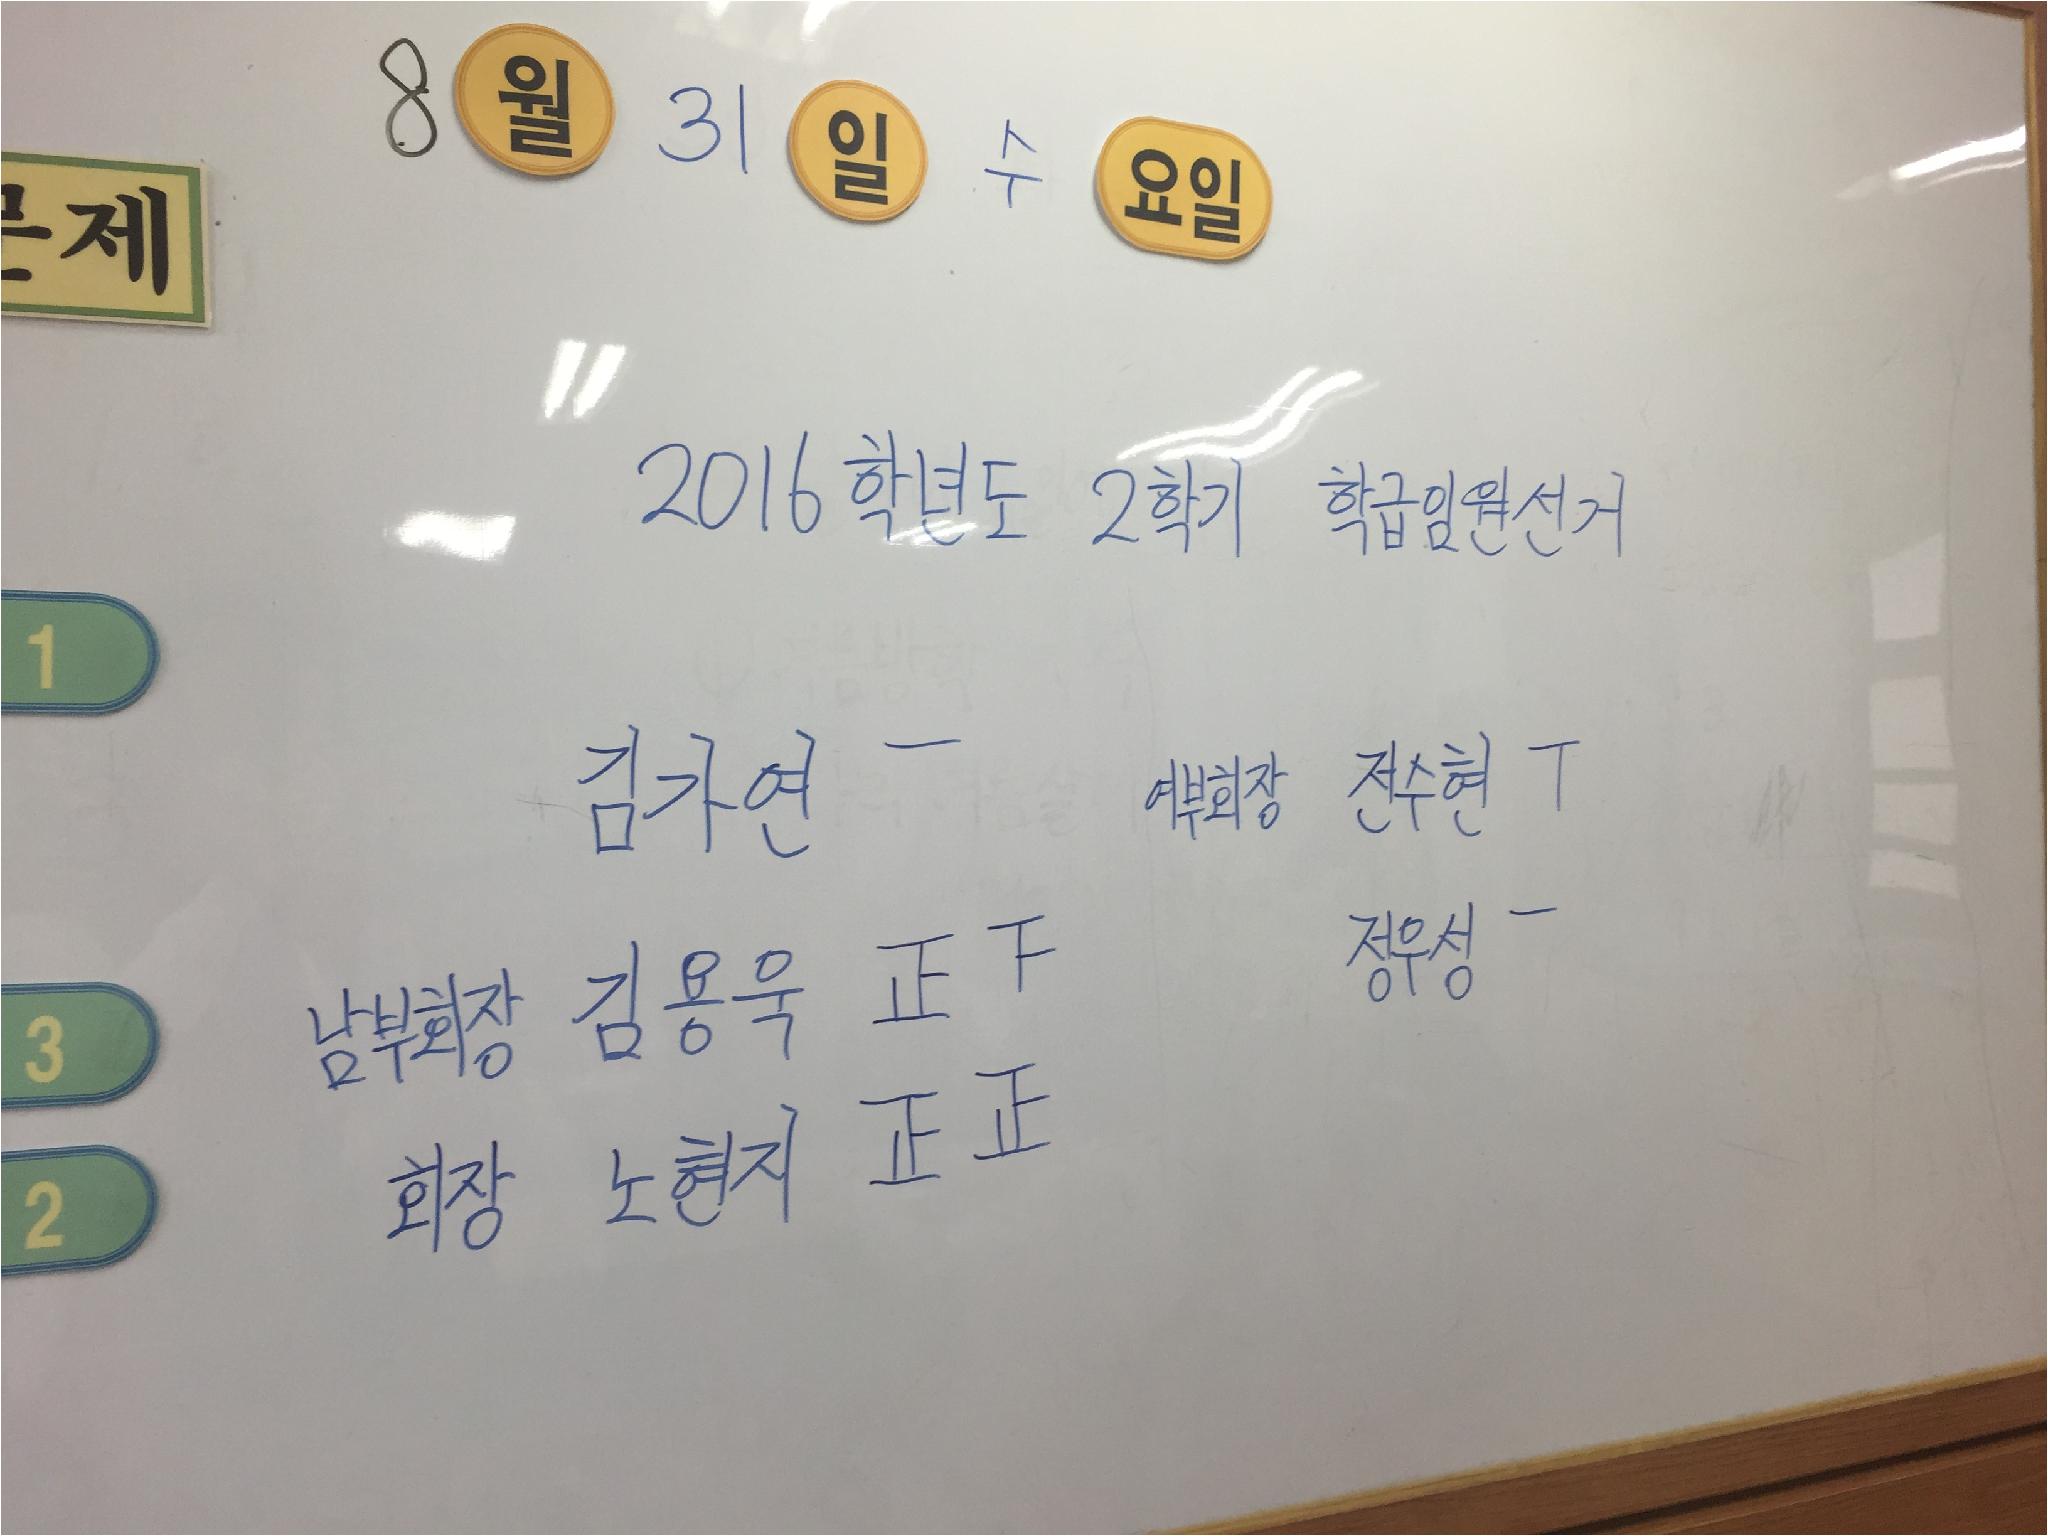 8월 31일 수요일
문제
2016학년도 2학기 학급임원선거
1
김가연 一
여부회장 전수현 丅
정우성 一
3
남부회장 김용욱 正 下
2
회장 노현지 正 正